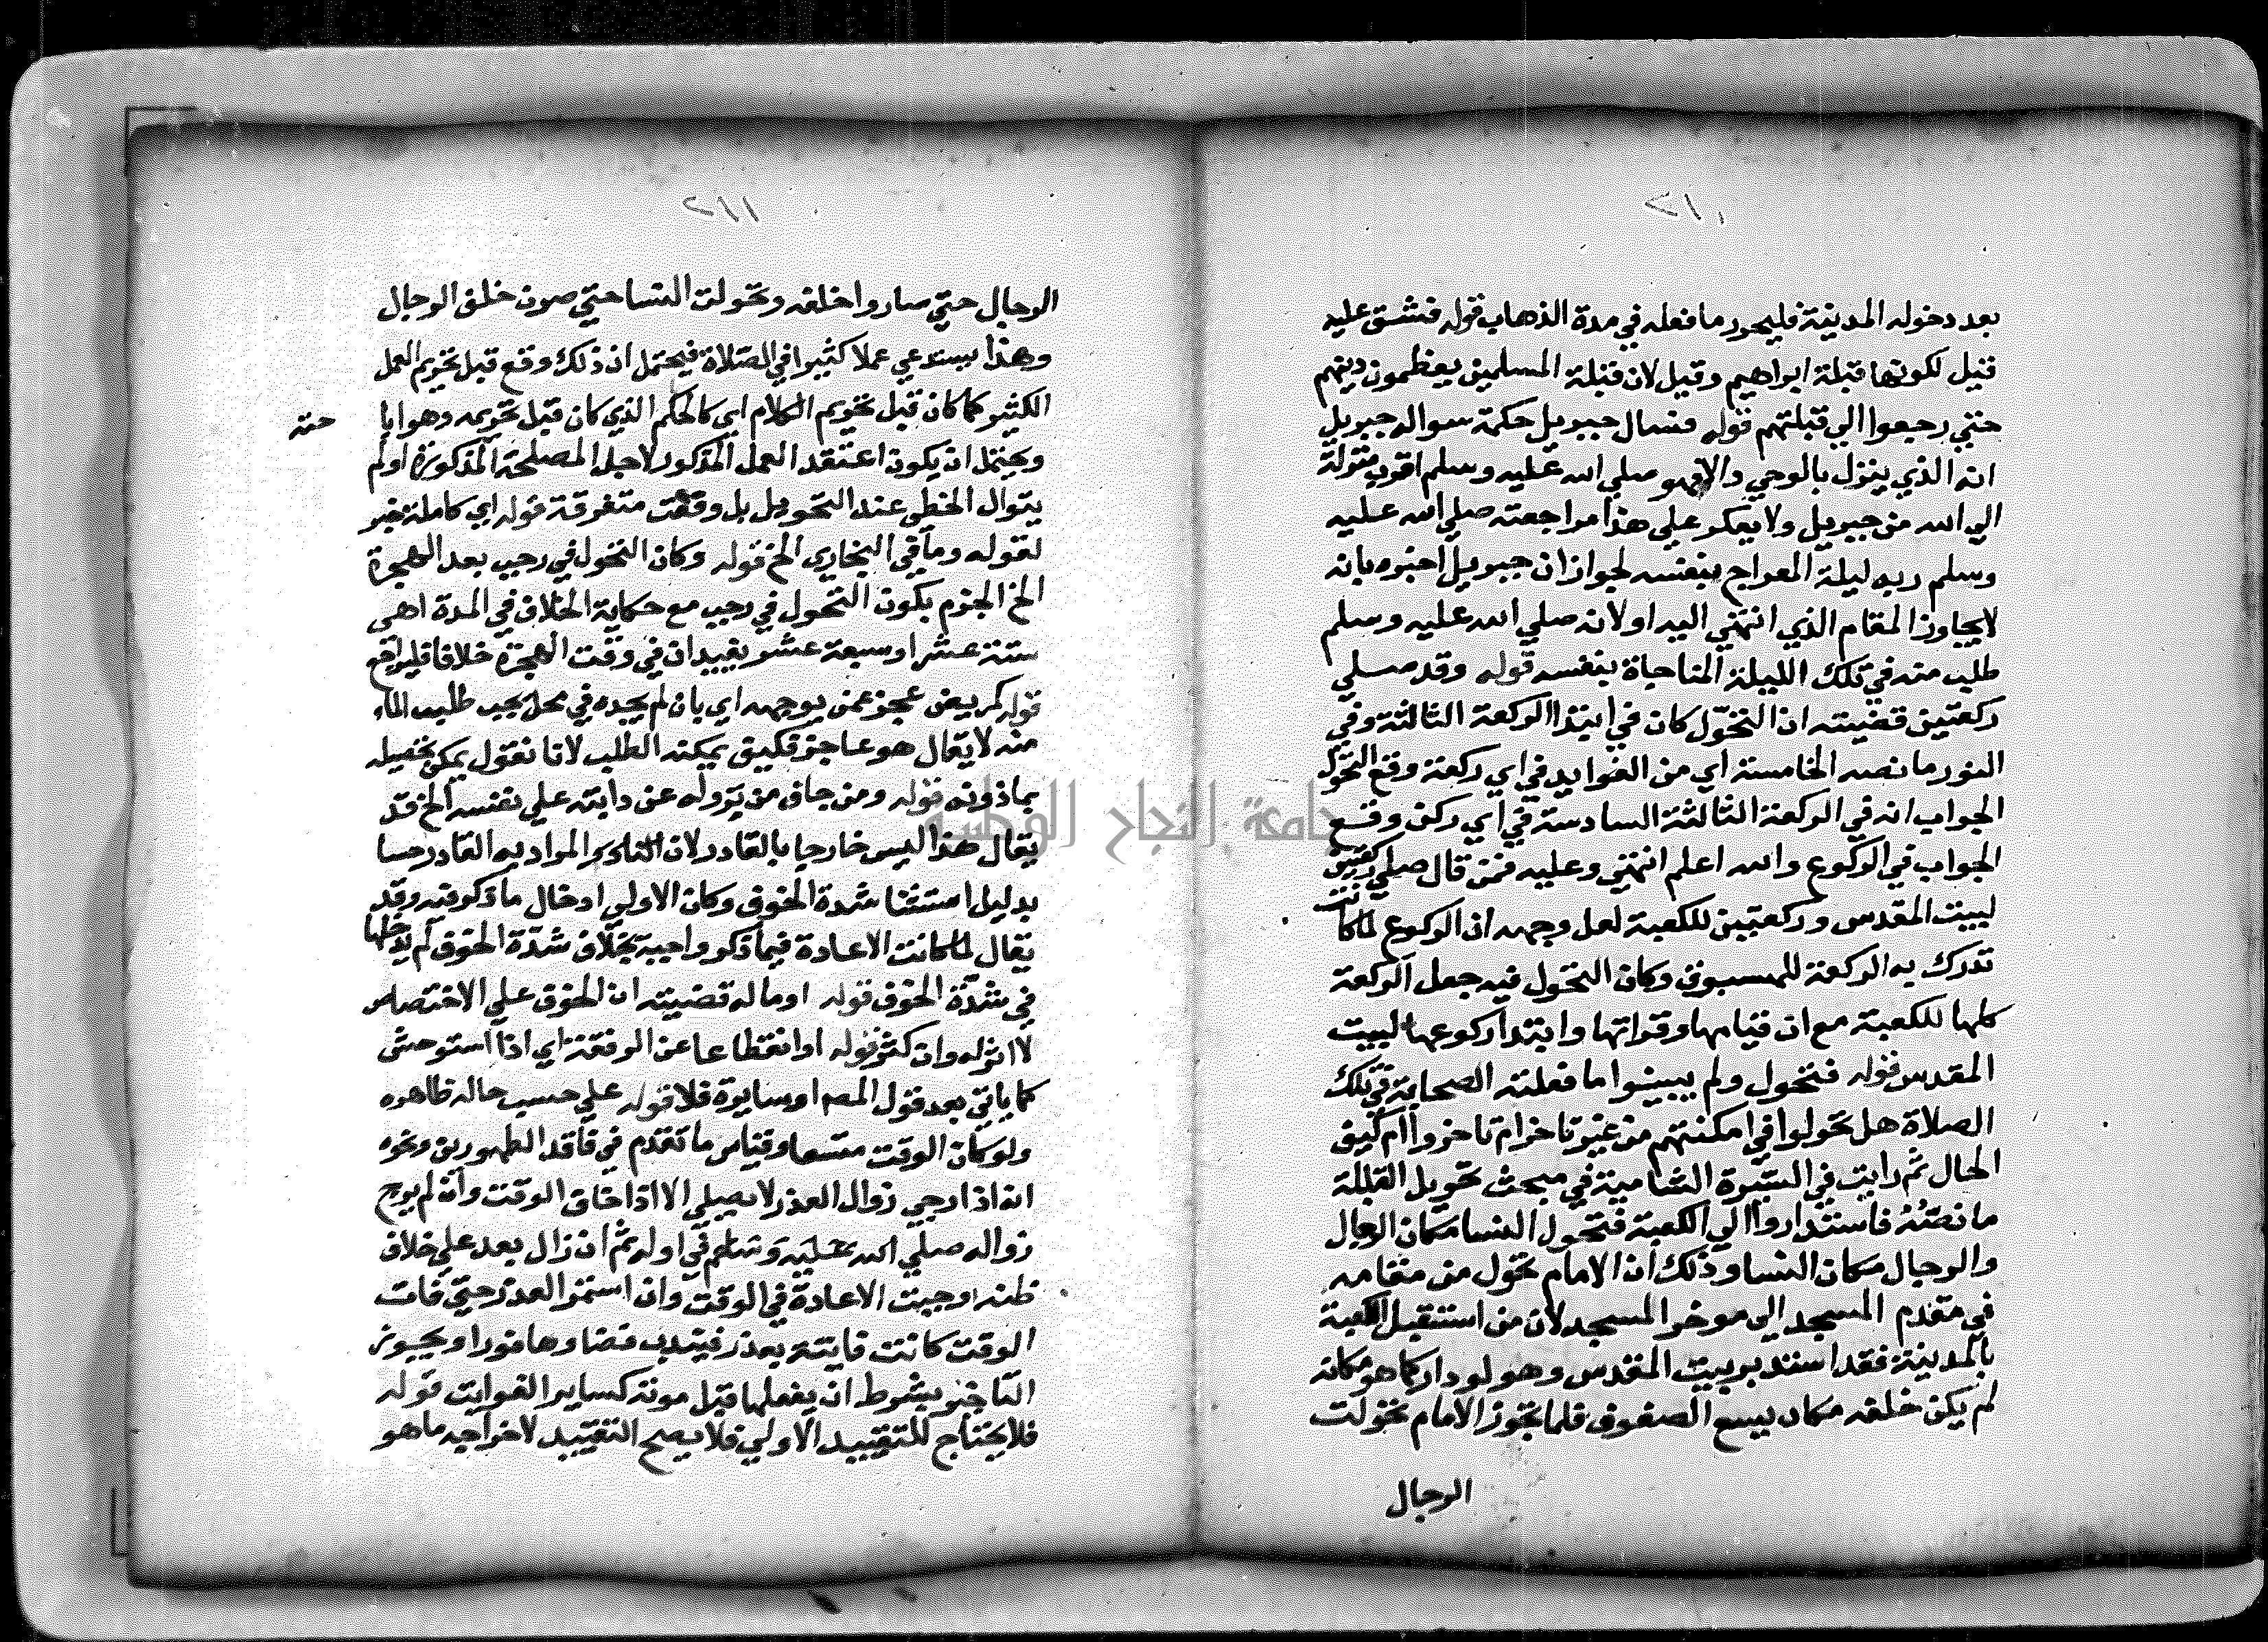 ٢١٠
بعد دخوله المدينة فليحرر ما فعله في مدة الذهاب قوله فشق عليه
قيل لكونها قبلة ابراهيم وقيل لان قبلة المسلمين يعظمون دينهم
حتي رجعوا الي قبلتهم قوله فسال جبريل حكمة سواله جبريل
انه الذي ينزل بالوحي والا فهو صلي الله عليه وسلم اقرب منزلة
الي الله من جبريل ولا يعكر علي هذا مراجعته صلي الله عليه
وسلم ربه ليلة المعراج بنفسه لجواز ان جبريل اخبره بانه
لا يجاوز المقام الذي انتهي اليه او لانه صلي الله عليه وسلم
طلب منه في تلك الليلة المناجاة بنفسه قوله وقد صلي
ركعتين قضيته ان التحول كان في ابتدا الركعة الثالثة وفي
النور ما نصه الخامسة اي من الفوايد في اي ركعة وقع التحول
الجواب انه في الركعة الثالثة السادسة في اي ركن وقع
الجواب في الركوع والله اعلم انتهي وعليه فمن قال صلي ركعتين
لبيت المقدس وركعتين للكعبة لعل وجهه ان الركوع لما كانت
تدرك به الركعة للمسبوق وكان التحول فيه جعل الركعة
كلها للكعبة مع ان قيامها وقراتها وابتدا ركوعها لبيت
المقدس قوله فتحول ولم يبينوا ما فعلته الصحابة في تلك
الصلاة هل تحولوا في امكنتهم من غير تاخرام تاخروا ام كيف
الحال ثم رايت في السيرة الشامية في مبحث تحويل القبلة
ما نصه فاستداروا الي الكعبة فتحول النسا مكان الرجال
والرجال مكان النسا وذلك ان الامام تحول من مقامه
في مقدم المسجد الي موخر المسجد لان من استقبل الكعبة
بالمدينة فقد استدبر بيت المقدس وهو لو دار كما هو مكانه
لم يكن خلفه مكان يسع الصفوف فلما تحول الامام تحولت
الرجال
٢١١
الرجال حتي صاروا خلفه وتحولت النسا حتي صرن خلف الرجال
وهذا يستدعي عملا كثيرا في الصلاة فيحتمل ان ذلك وقع قبل تحريم العمل
الكثير كما كان قبل تحريم الكلام اي كالحكم الذي كان قبل تحريمه وهو ابا
حته
ويحتمل ان يكون اغتفد العمل المذكور لاجل المصلحة المذكورة او لم
يتوال الخطي عند التحويل بل وقعت متفرقة قوله اي كاملة خبر
لقوله وما في البخاري الخ قوله وكان التحول في رجب بعد الهجرة
الخ الجزم بكون التحول في رجب مع حكاية الخلاف في المدة اهي
ستة عشر او سبعة عشر يفيد ان في وقت الهجرة خلافا فليراجع
قوله كمريض عجز عمن يوجهه اي بان لم يجده في محل يجب طلب الماء
منه لا يقال هو عاجز فكيف يمكنه الطلب لانا نقول يمكن تحصيله
بماذونه قوله ومن خاف من نزوله عن دابته علي نفسه الخ قد
يقال هذا ليس خارجا بالقادر لان القادر المراد به القادر حسا
بدليل استثنا شدة الخوف وكان الاولي ادخال ما ذكر فيه وقد
يقال لما كانت الاعادة فيما ذكر واجبة بخلاف شدة الخوف لم يدخلها
في شدة الخوف قوله او ماله قضيته ان الخوف علي الاختصاص
لا اثر له وان كثر قوله او انقطاعا عن الرفقة اي اذا استوحش
كما ياتي بعد قول المص او سايرة فلا قوله علي حسب حاله ظاهره
ولو كان الوقت متسعا وقياس ما تقدم في فاقد الطهورين ونحوه
انه اذا رجي زوال العذر لا يصلي الا اذا ضاق الوقت وانه لم يرج
زواله صلي الله عليه وسلم في اوله ثم ان زال بعد علي خلاف
ظنه وجبت الاعادة في الوقت وان استمر العذر حتي فات
الوقت كانت فايتة بعذر فيندب قضاوها فورا ويجوز
التاخير بشرط ان يفعلها قبل موته كساير الفوايت قوله
فلا يحتاج للتقييد الاولي فلا يصح التقييد لاخراجه ما هو
جامعة النجاح الوطنية